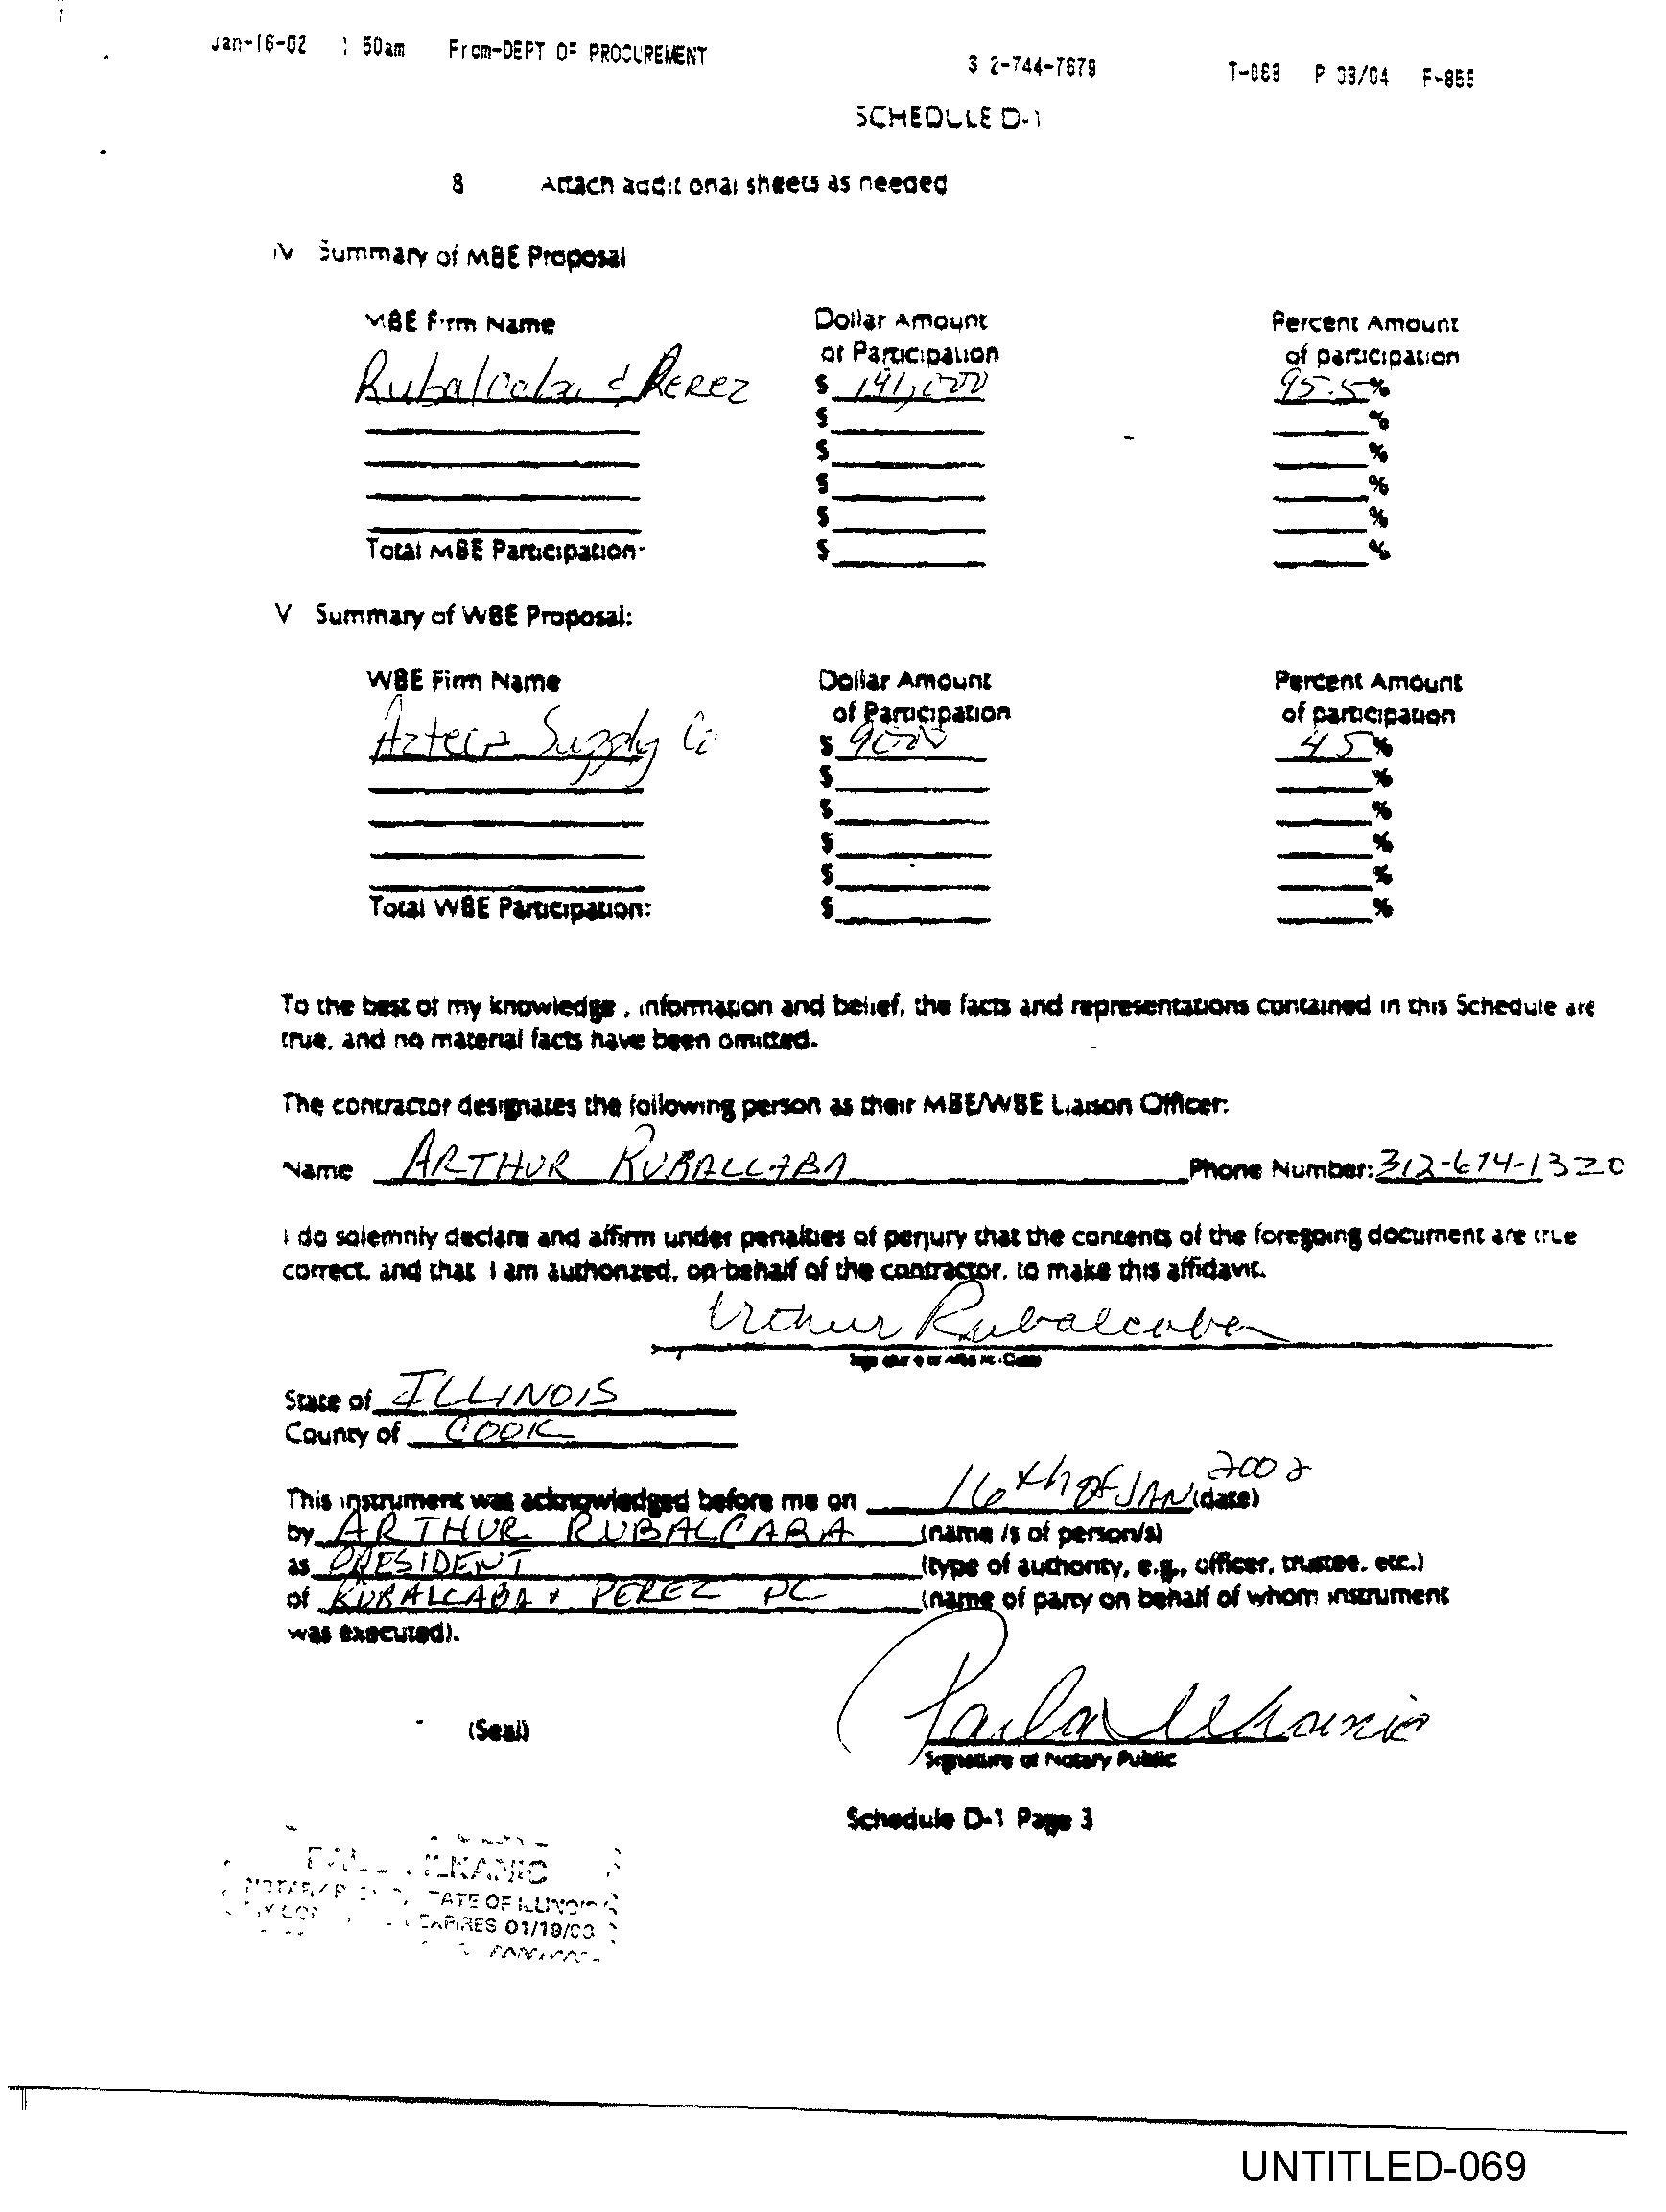 Jan-16-02 : 50am From-DEPT OF PROCUREMENT 3 2-744-7679 T-069 P 03/04 F-855
SCHEDULE D-1
8 Attach addit onal sheets as needed
IV Summary of MBE Proposal
MBE Firm Name Dollar Amount Percent Amount
of Participation of participation
Rubalcaba & Perez $ 191,000 95.5%
$ %
$ %
$ %
$ %
Total MBE Participation: $ %
V Summary of WBE Proposal:
WBE Firm Name Dollar Amount Percent Amount
of Participation of participation
Azteca Supply Co $ 9000 4 5%
$ %
$ %
$ %
$ %
Total WBE Participation: $ %
To the best of my knowledge , information and belief, the facts and representations contained in this Schedule are
true, and no material facts have been omitted.
The contractor designates the following person as their MBE/WBE Liaison Officer:
Name ARTHUR RUBALCABA Phone Number: 312-674-1320
I do solemnly declare and affirm under penalties of perjury that the contents of the foregoing document are true
correct, and that I am authorized, on behalf of the contractor, to make this affidavit.
Arthur Rubalcaba
State of ILLINOIS
County of COOK
This instrument was acknowledged before me on 16th OF JAN 2002 (date)
by ARTHUR RUBALCABA (name /s of person/s)
as PRESIDENT (type of authority, e.g., officer, trustee, etc.)
of RUBALCABA & PEREZ PC (name of party on behalf of whom instrument
was executed).
(Seal)
Signature of Notary Public
Schedule D-1 Page 3
STATE OF ILLINOIS
EXPIRES 01/19/03
UNTITLED-069